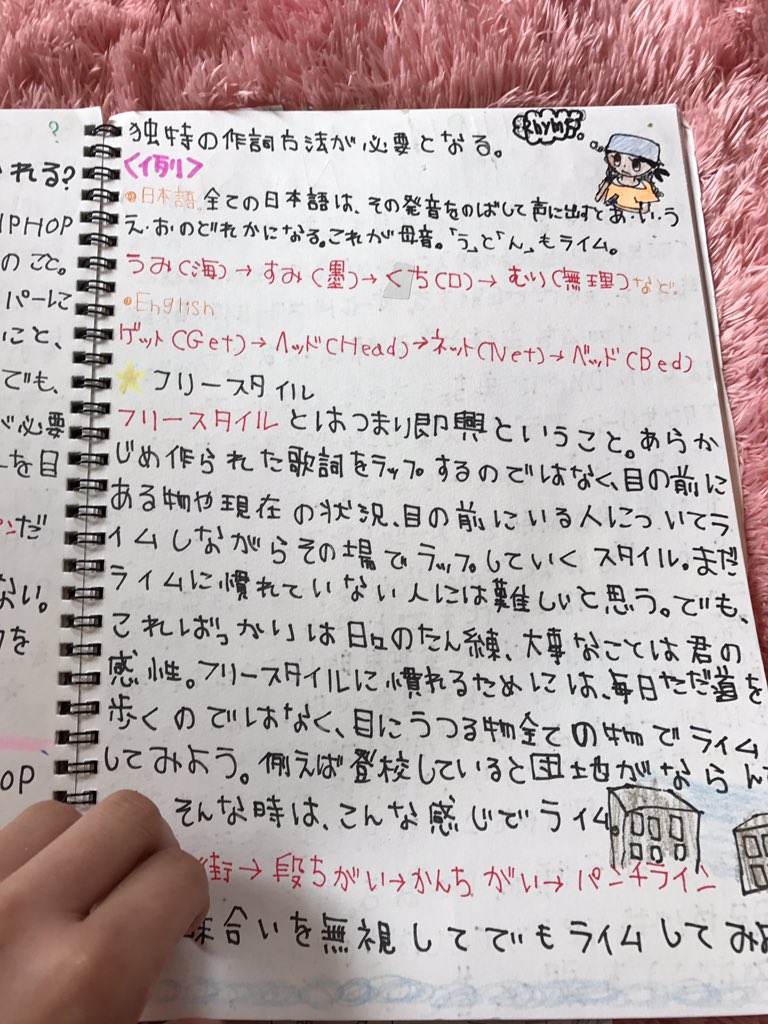 ?
れる?
HIPHOP
のこと。
パーに
いこと、
でも、
が必要
ーを目
だ
ない。
を
OP
独特の作詞方法が必要となる。
Rhyme
<例>
日本語.全ての日本語は、その発音をのばして声に出すとあ・い・う
え・お・のどれかになる。これが母音。「う」と「ん」もライム。
うみ(海)→すみ(墨)→くち(口)→むり(無理)など
English
ゲット(Get)→ヘッド(Head)→ネット(Net)→ベッド(Bed)
フリースタイル
フリースタイルとはつまり即興ということ。あらか
じめ作られた歌詞をラップするのではなく、目の前に
ある物や現在の状況、目の前にいる人についてラ
イムしながらその場でラップしていくスタイル。まだ
ライムに慣れていない人には難しいと思う。でも、
こればっかりは日々のたん練、大事なことは君の
感性。フリースタイルに慣れるためには、毎日ただ道を
歩くのではなく、目にうつる物全ての物でライム
してみよう。例えば登校していると団地がならん
そんな時は、こんな感じでライム。
街→段ちがい→かんちがい→パンチライン
味合いを無視してでもライムしてみよ